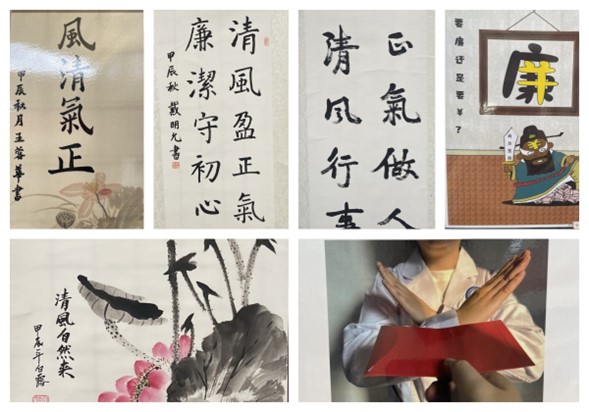 風清氣正
甲辰秋月王蓉華書
清風盈正氣
廉潔守初心
甲辰秋 戴明允書
正氣做人
清风行事
要廉还是要￥？
廉
清風自然来
甲辰年白露